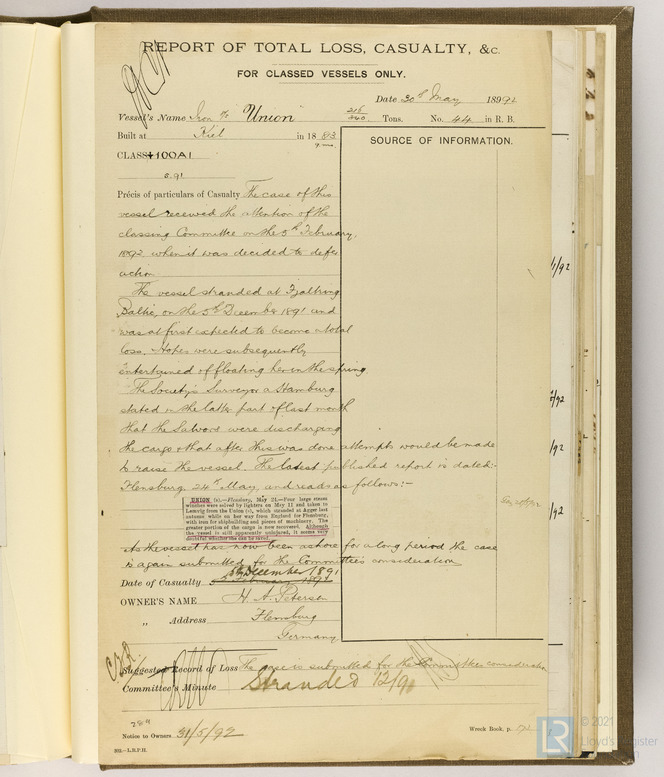 REPORT OF TOTAL LOSS, CASUALTY, &c.
FOR CLASSED VESSELS ONLY.
Date 30th May 1892
Vessel's Name Iron Union 216 Tons. No. 44 in R. B.
Built at Kiel in 1883
CLASS 100A1
5.91
SOURCE OF INFORMATION.
Précis of particulars of Casualty The case of this
vessel received the attention of the
classing Committee on the 5th February,
1892 when it was decided to defer
action
The vessel stranded at Fjaltring
Baltic, on the 5th December 1891 and
was at first expected to become a total
loss. Hopes were subsequently
entertained of floating her in the spring
The Society's Surveyor a Hamburg
stated in the latter part of last month
that the Salvors were discharging
the cargo & that after this was done attempts would be made
to raise the vessel. The latest published report is dated:-
Flensburg 24th May, and reads as follows:-
UNION (s).—Flensburg, May 21.—Four large steam
winches were salved by lighters on May 11 and taken to
Lemvig from the Union (s), which stranded at Agger last
autumn while on her way from England for Flensburg,
with iron for shipbuilding and pieces of machinery. The
greater portion of the cargo is now recovered. Although
the vessel is still apparently uninjured, it seems very
doubtful whether she can be saved.
As the vessel has now been ashore for a long period the case
is again submitted for the Committee's consideration
5th December 1891
Date of Casualty
OWNER'S NAME H. A. Petersen
„ Address Flensburg
Germany
Suggested Record of Loss The case is submitted for the Committee's consideration
Committee's Minute Stranded 12/91
Notice to Owners 31/5/92
Wreck Book, p.
LR
© 2021
Lloyd's Register
1/92
/92
/92
/92